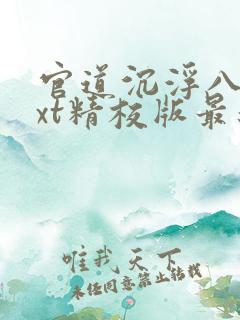 官道沉浮八
xt精校版最
唯我天下
未经同意禁止转载